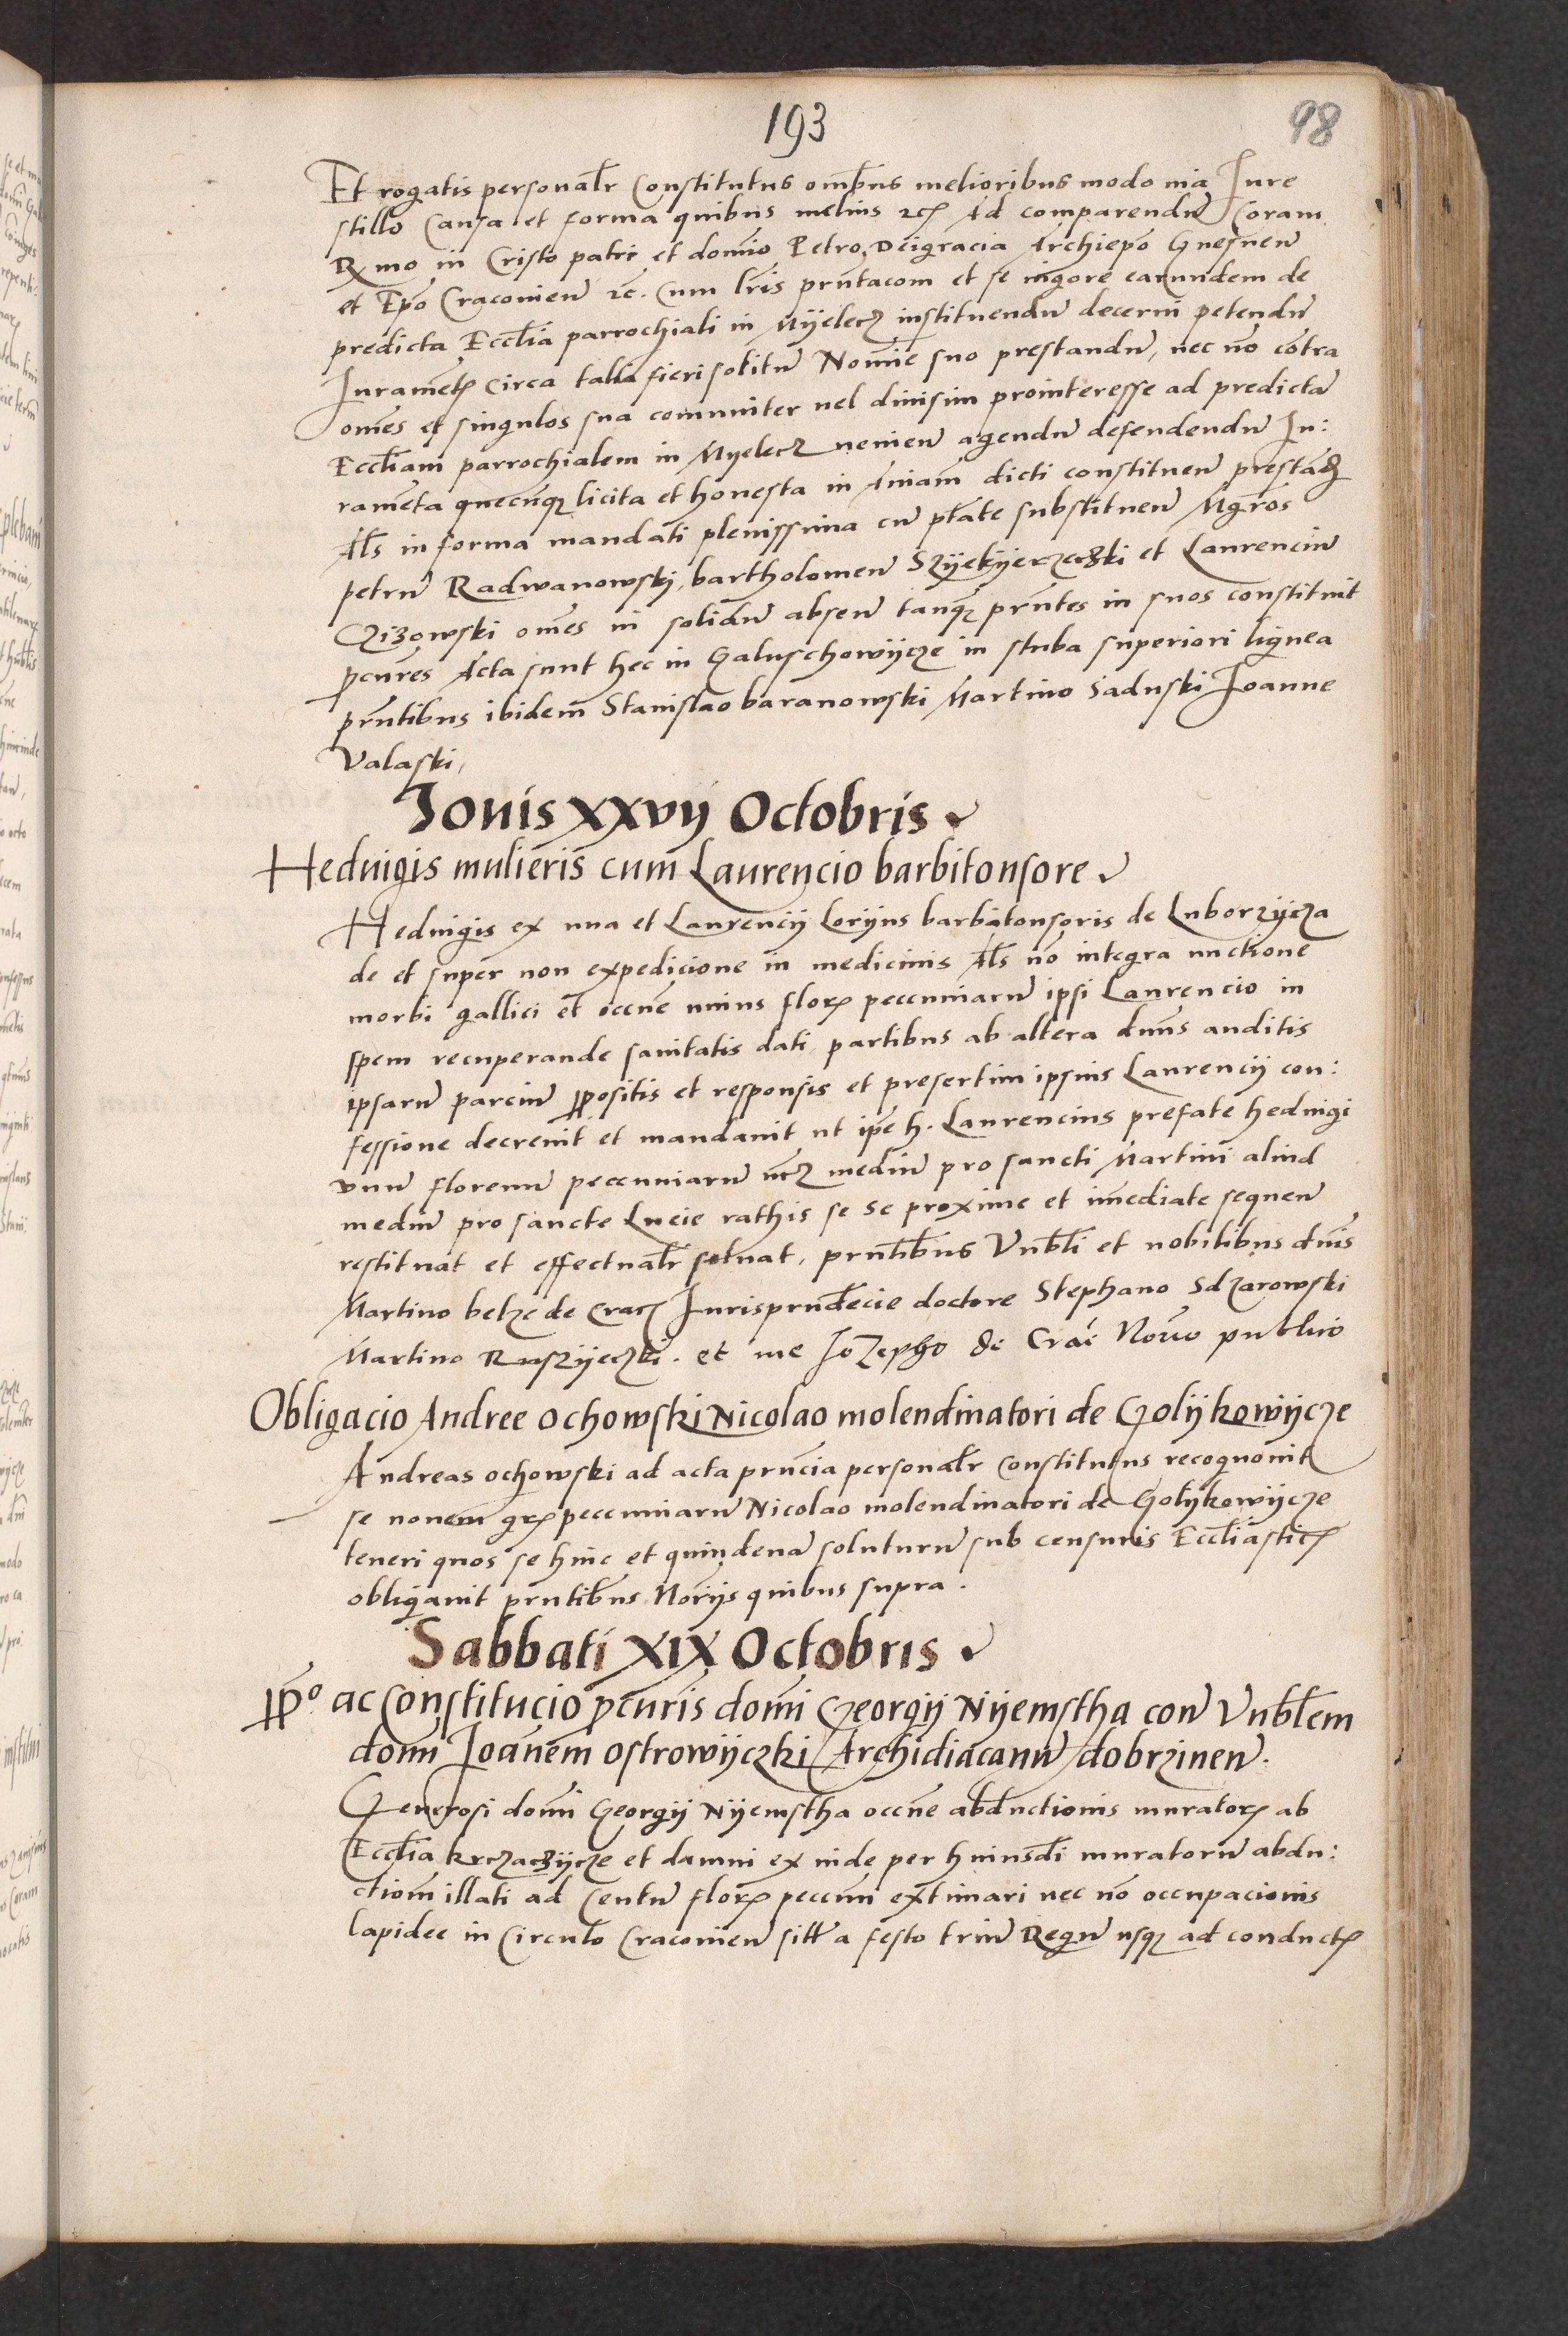 193
98
Et rogatis personalr Constitutus omĩbus melioribus modo via Iure
stillo Causa et forma quibus melius etc Ad comparendũ Coram
Rmo in Cristo patri et domĩo Petro Deigracia Archiepõ Gnesneñ
et Epõ Cracovieñ etc. Cum lr̃is prñtacom et se vigore earundem de
predicta Ecclĩa parrochiali in Myelecz instituendũ decerni petendũ
Iurametꝭ Circa talia fieri solitũ Nomĩe suo prestandũ, nec nõ cõtra
om̃es et singulos sua comuniter uel divisim prointeresse ad predictã
Ecclĩam parrochialem in Myelecz venieñ agendũ defendendũ Iu:
ramẽta quecũqꝫ licita et honesta in Aniam̃ dicti constitueñ prestãdꝭ
Als̃ in forma mandati plenissima cũ ptãte substitueñ Mgr̃os
petrũ Radwanowski, bartholomeũ Szyekyerzeczki et Laurenciũ
Czizowski om̃es in solidũ abseñ tanqꝫ prñtes in suos constituit
pcur̃es Acta sunt hec in Galuschowycze in stuba superiori lignea
prñtibus ibidem̃ Stanislao baranowski Martino Saduski Ioanne
Valaski,
Iovis XXVII Octobris
Heduigis mulieris cum Laurencio barbitonsore
Heduigis ex una et Laurencij Loryns barbitonsoris de Luborzycza
de et super non expedicione in medicinis Als̃ nõ integra unctione
morbi gallici et occñe unius florꝭ peccuniarũ ipsi Laurencio in
spem recuperande sanitatis dati partibus ab altera dnũs auditis
ipsarũ parciũ ꝓpositis et responsis et presertim ipsius Laurencij con:
fessione decrevit et mandavit ut ipẽ h. Laurencius prefate heduigi
unũ florenũ peccuniarũ vcz mediũ pro sancti Martini aliud
mediũ pro sancte Lucie rathis se se proxime et im̃ediate sequeñ
restituat et effectualr̃ soluat, prñtibus Vnbl̃i et nobilibus dnĩs
Martino belze de Cracꝭ Iurisprudẽcie doctore Stephano Sdzarowski
Martino Ruszyeczki. et me Iozepho de Crac̃ Notr̃io publico
Obligacio Andree Ochowski Nicolao molendinatori de Golykowycze
Andreas ochowski ad acta prñcia personalr̃ constitutus recognovit
se novem grꝭ peccuniarũ Nicolao molendinatori de Golykowycze
teneri quos se hinc et quindenã soluturũ sub censuris Eccl̃iasticꝭ
obligavit prñtibus Nor̃ijs quibus supra.
Sabbati XIX Octobris
ꝓpº. ac Constitucio pcur̃is domĩ Georgij Nyemstha con̄ Vnbl̃em
dom̃ Ioanẽm Ostrowyczki Archidiacanũ dobrzineñ.
Generosi domĩ Georgij Nyemstha occñe abductionis muratorꝭ ab
Ecclĩa krczaczycze et damni ex inde per huiusd̃i muratorũ abdu:
ctiom̃ illati ad Centũ florꝭ peccuñi extimari nec nõ occupacionis
lapidee in Circulo Cracovieñ sitt̃ a festo triũ Regũ usqꝫ ad conductꝭ